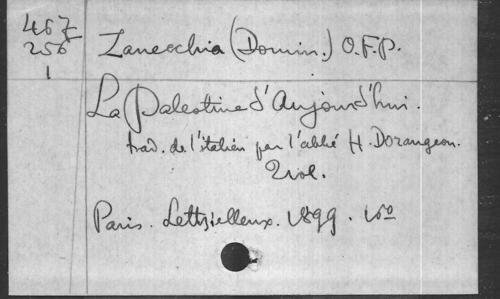 467
256
1
Zanecchia (Domin.) O.F.P.
La Palestine d'Aujourd'hui.
trad. de l'italien par l'abbé H. Dorangeon.
2 vol.
Paris. Lethielleux. 1899. 16°